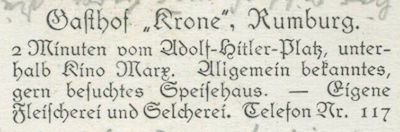 Gasthof „Krone“, Rumburg.
2 Minuten vom Adolf-Hitler-Platz, unter-
halb Kino Marx. Allgemein bekanntes,
gern besuchtes Speisehaus. — Eigene
Fleischerei und Selcherei. Telefon Nr. 117